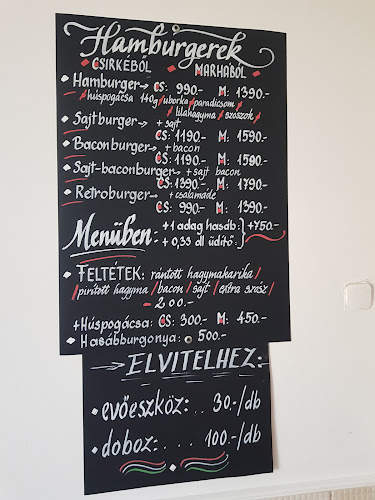 Hamburgerek
CSIRKÉBŐL MARHÁBÓL
• Hamburger → CS: 990.- M: 1390.-
húspogácsa 140g / uborka / paradicsom /
/ lilahagyma / szószok /
• Sajtburger → + sajt
CS: 1190.- M: 1590.-
• Baconburger → + bacon
CS: 1190.- M: 1590.-
• Sajt-baconburger → + sajt bacon
CS: 1390.- M: 1790.-
• Retroburger → + csalamádé
CS: 990.- M: 1390.-
Menüben - + 1 adag hasáb: } + 750.-
+ 0,33 dl üdítő:
• FELTÉTEK: rántott hagymakarika /
/ pirított hagyma / bacon / sajt / extra szósz /
- 200.-
+ Húspogácsa: CS: 300.- M: 450.-
• Hasábburgonya: 500.-
→ ELVITELHEZ:
• evőeszköz: .. 30.-/db
• doboz: .... 100.-/db